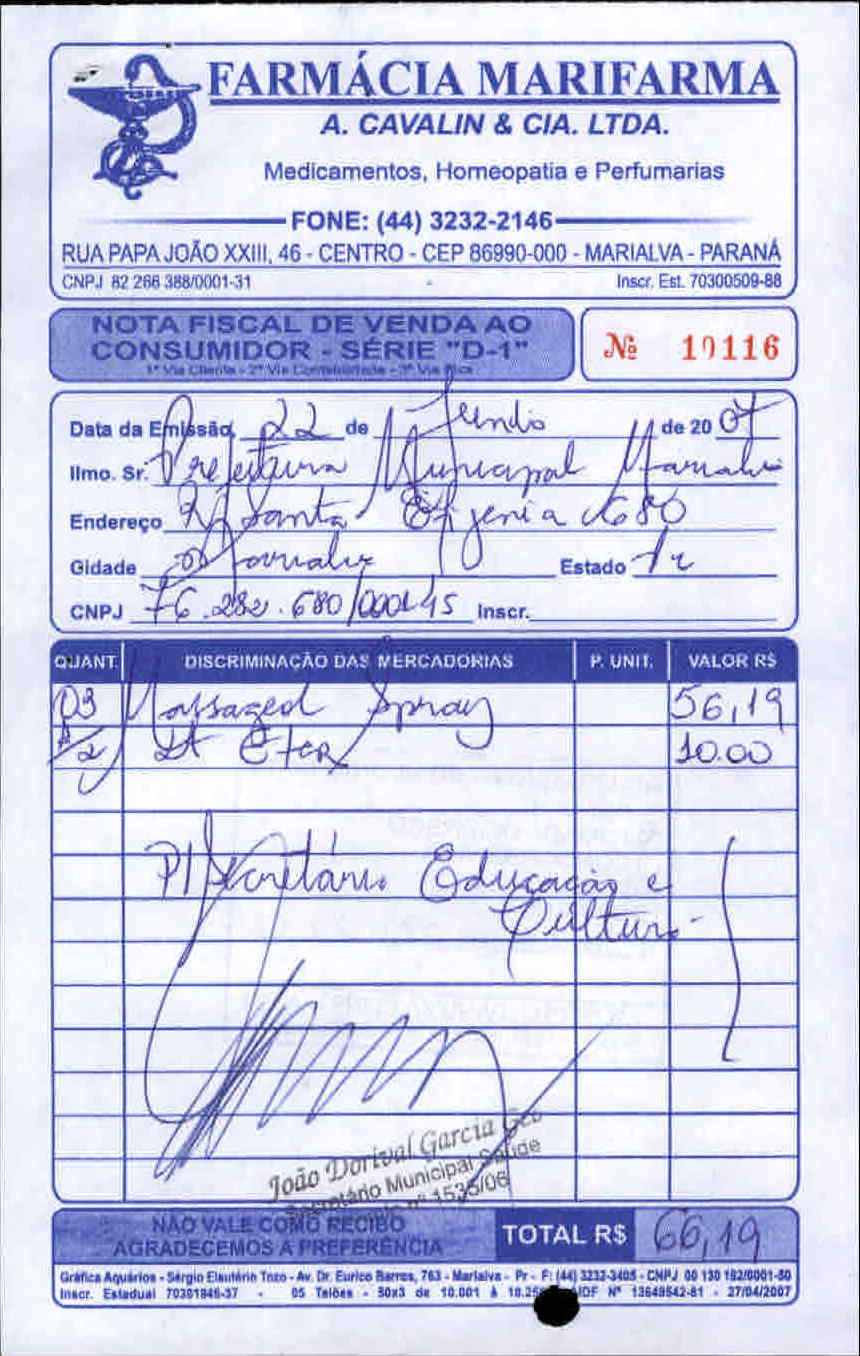 FARMÁCIA MARIFARMA
A. CAVALIN & CIA. LTDA.
Medicamentos, Homeopatia e Perfumarias
FONE: (44) 3232-2146
RUA PAPA JOÃO XXIII, 46 - CENTRO - CEP 86990-000 - MARIALVA - PARANÁ
CNPJ 82 266 388/0001-31 Inscr. Est. 70300509-88
NOTA FISCAL DE VENDA AO
CONSUMIDOR - SÉRIE "D-1"
1ª Via Cliente - 2ª Via Contabilidade - 3ª Via Fixa
Nº 10116
Data da Emissão 22 de Junho de 2007
Ilmo. Sr. Prefeitura Municipal Marialva
Endereço R/ Santa Efigenia 680
Cidade Marialva Estado Pr
CNPJ 76.282.680/0001-45 Inscr.
QUANT. DISCRIMINAÇÃO DAS MERCADORIAS P. UNIT. VALOR R$
03 Massageol Spray 56,19
1/2 Lt Eter 10.00
P/ Secretário Educação e
Cultura
João Dorival Garcia
Secretário Municipal Saúde
nº 1535/06
NÃO VALE COMO RECIBO
AGRADECEMOS A PREFERÊNCIA
TOTAL R$ 66,19
Gráfica Aquários - Sérgio Elautério Tozo - Av. Dr. Eurico Barros, 763 - Marialva - Pr - F: (44) 3232-3405 - CNPJ 00 130 192/0001-50
Inscr. Estadual 70301946-37 - 05 Talões - 50x3 de 10.001 à AIDF Nº 13649542-81 - 27/04/2007